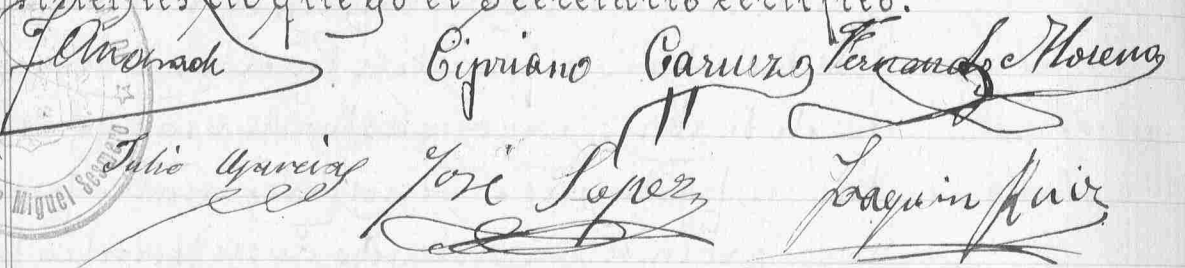 el Secretario certifico.
J Andrade Cipriano Caruezo Fernando Moreno
Julio Garcias José López Joaquin Ruiz
Miguel Sesmero